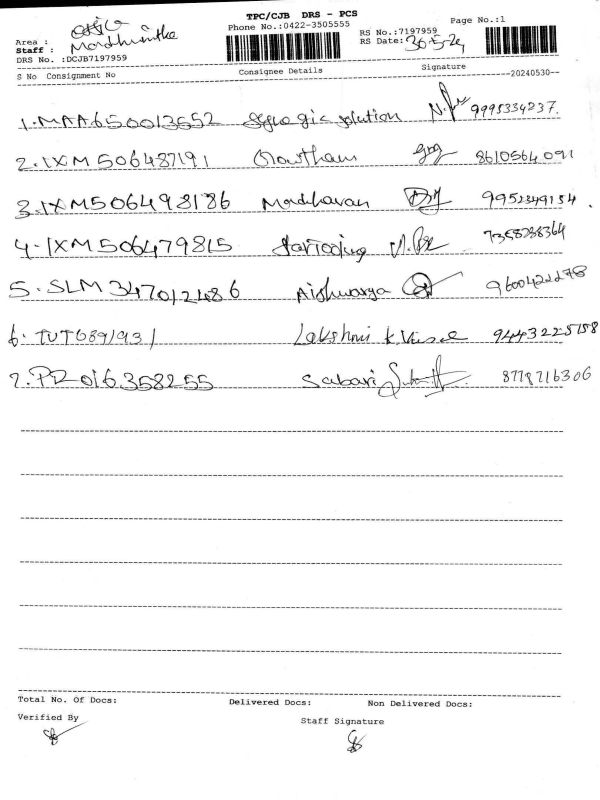 TPC/CJB DRS - PCS
Phone No.:0422-3505555 Page No.:1
Area : RS No.:7197959
Staff : Madhumitha RS Date: 30-5-24
DRS No. :DCJB7197959
S No Consignment No Consignee Details Signature --20240530--
1. MAA650013552 solution 9995334237.
2. IXM506487191 Gowtham 8610564091
3. IXM506498186 Madhavan 9952349134.
4. IXM506479815 7358238364
5. SLM347012486 Aishwarya 9600422278
6. TUT689193 / Lakshmi 9443225158
7. PDQ16358255 Sabari 8778716306
Total No. Of Docs: Delivered Docs: Non Delivered Docs:
Verified By Staff Signature